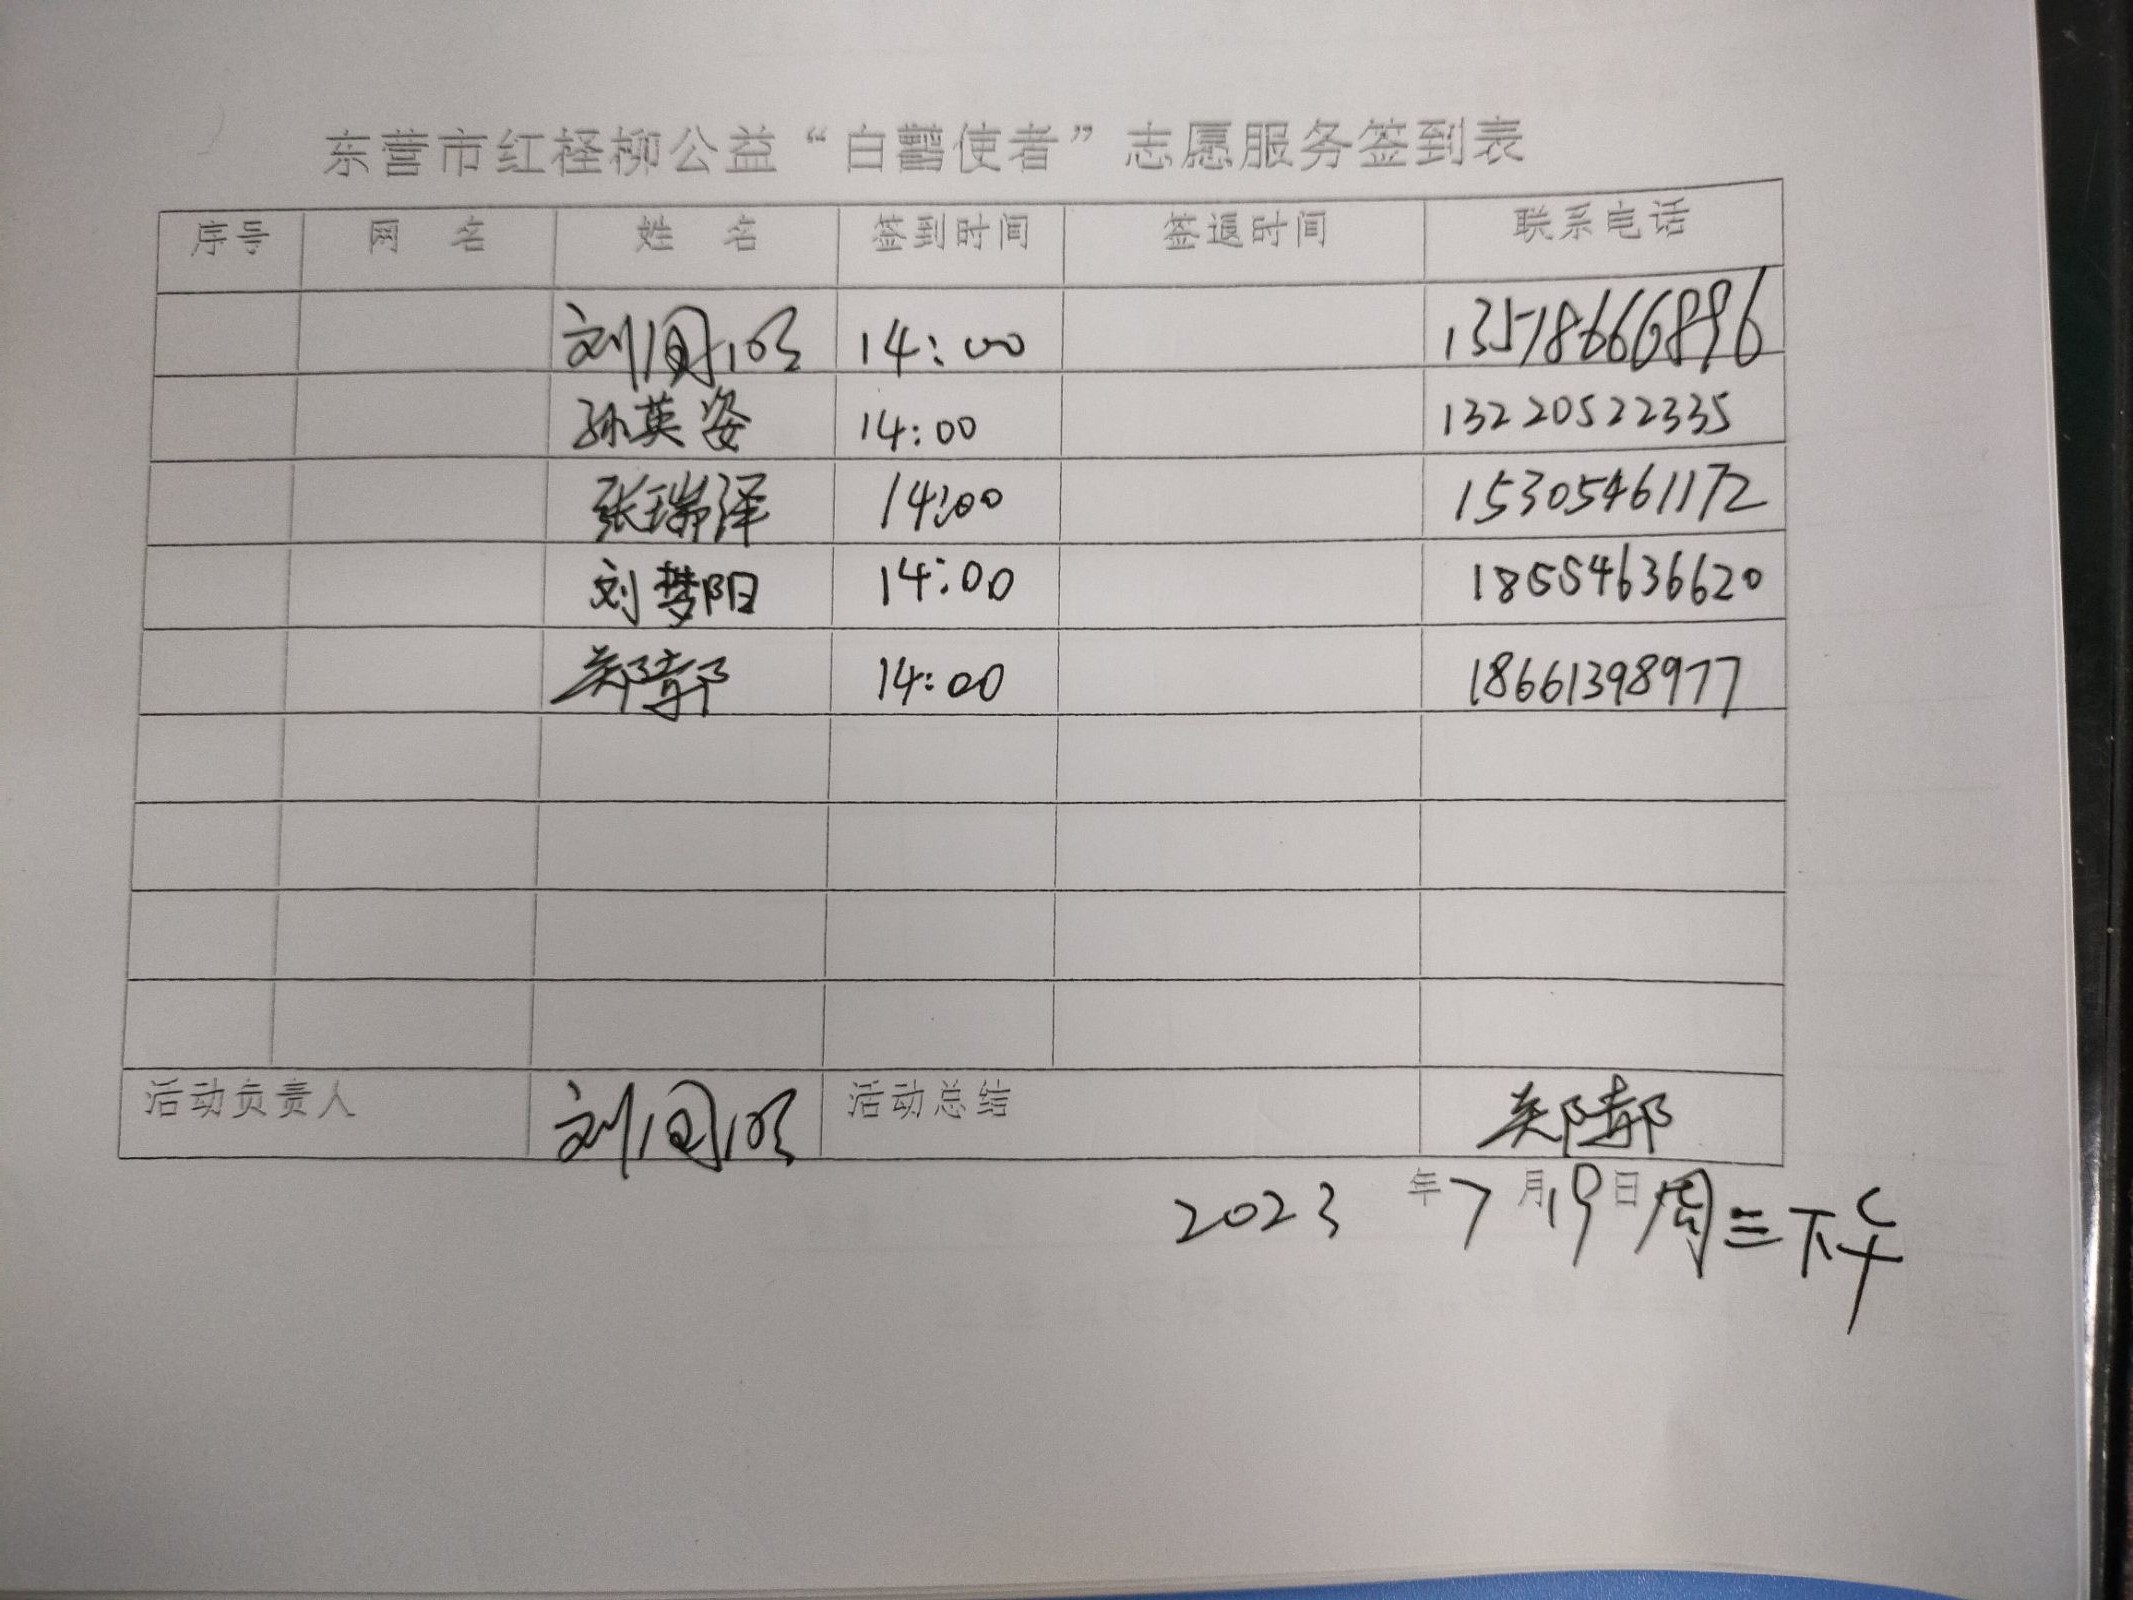 东营市红柽柳公益“白鹳使者”志愿服务签到表
序号 网 名 姓 名 签到时间 签退时间 联系电话
刘 14:00 13578666896
孙英姿 14:00 13220522335
张瑞泽 14:00 15305461172
刘梦阳 14:00 18554636620
郑 14:00 18661398977
活动负责人 刘 活动总结 郑
2023 年 7 月 19 日 周三下午